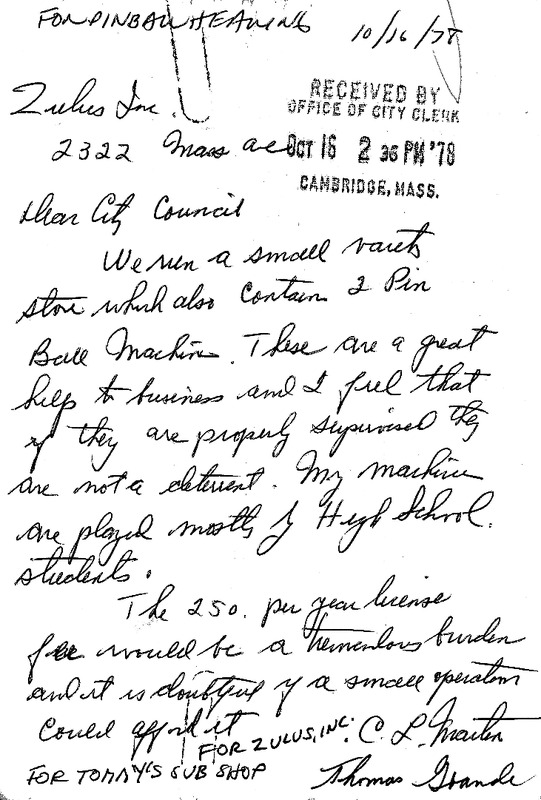 FOR PINBALL HEARING
10/16/78
RECEIVED BY
OFFICE OF CITY CLERK
OCT 16 2 36 PM '78
CAMBRIDGE, MASS.
Zulus Inc.
2322 Mass ave
Dear City Council
We run a small variety
store which also contain 2 Pin
Ball Machine. These are a great
help to business and I feel that
if they are properly supervised they
are not a deterrent. My machine
are played mostly by High School
students.
The 250. per year license
fee would be a tremendous burden
and it is doubtful if a small operation
could afford it
FOR ZULUS, INC. C. L. Martin
FOR TOMMY'S SUB SHOP Thomas Grande